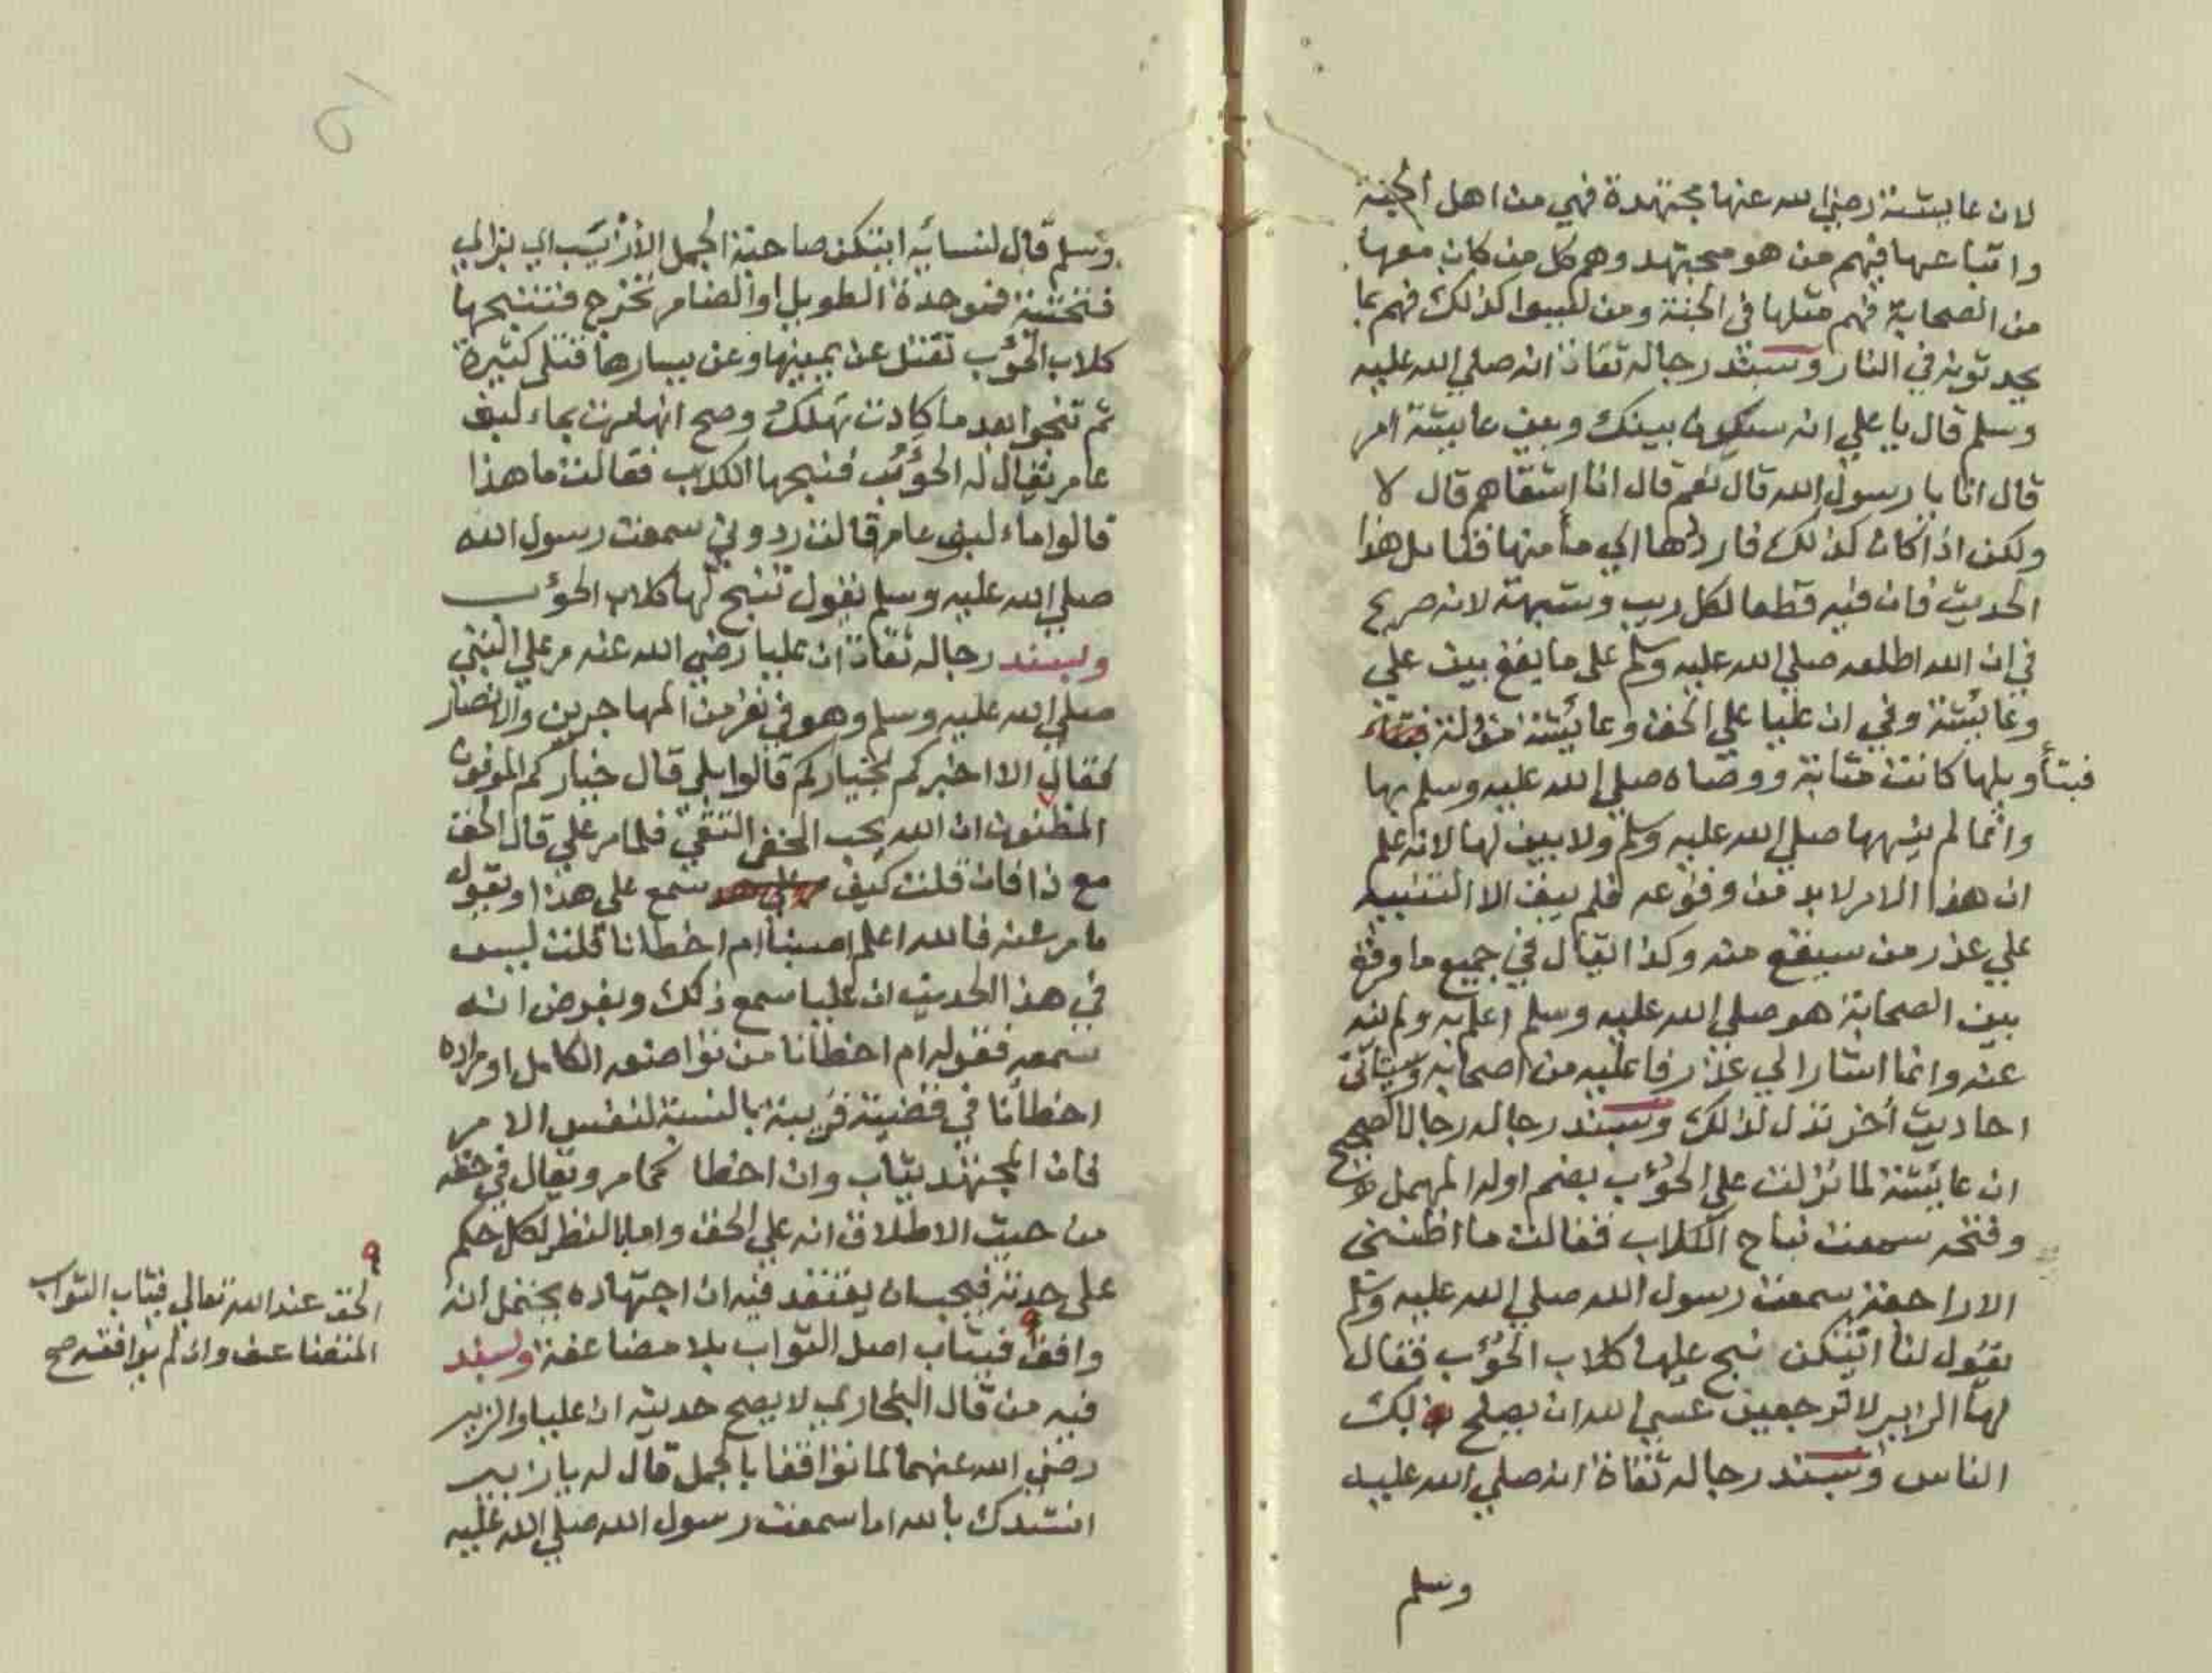 لان عايشة رضي الله عنها مجتهدة فهي من اهل الجنة
واتباعها فيهم من هو مجتهد وهم كل من كان معها
من الصحابة فهم مثلها في الجنة ومن ليسوا كذلك فهم بما
يحدثونه في النار وبسند رجاله ثقات انه صلي الله عليه
وسلم قال يا علي انه سيكون بينك وبين عايشة امر
قال انا يا رسول الله قال نعم قال انا اشقاهم قال لا
ولكن اذا كان كذلك فارددها الي مأمنها فتامل هذا
الحديث فان فيه قطعا لكل ريب وشبهة لانه صريح
في ان الله اطلعه صلي الله عليه وسلم على ما يقع بين علي
وعائشة وفي ان عليا علي الحق وعائشة مؤولة
فبتأويلها كانت مثابة ووصاه صلي الله عليه وسلم بها
وانما لم ينهها صلي الله عليه وسلم ولا بين لها لانه علم
ان هذا الامر لا بد من وقوعه فلم يبق الا التنبيه
علي عذر من سيقع منه وكذا يقال في جميع ما وقع
بين الصحابة هو صلي الله عليه وسلم اعلم به ولم ينه
عنه وانما اشار الي عذر فاعليه من اصحابه وسيأتى
احاديث أخر تدل لذلك وبسند رجاله رجال الصحيح
ان عائشة لما نزلت علي الحؤُب بضم اوله المهمل
وفتحه سمعت نباح الكلاب فقالت ما اظننى
الا راجعة سمعت رسول الله صلي الله عليه وسلم
يقول لنا ايتكن تنبح عليها كلاب الحؤب فقال
لها الزبير لا ترجعين عسي الله ان يصلح بك
الناس وبسند رجاله ثقاة انه صلي الله عليه
وسلم
وسلم قال لنسائه ايتكن صاحبة الجمل الأزْيَب اي بزاي
فتحتية فموحدة الطويل او الضامر تخرج فتنبحها
كلاب الحؤب تقتل عن يمينها وعن يسارها قتلى كثيرة
ثم تنجوا بعد ما كادت تهلك وصح انها مرت بماء لبنى
عامر يقال له الحؤُب فنبحها الكلاب فقالت ما هذا
قالوا ماء لبنى عامر قالت ردوني سمعت رسول الله
صلي الله عليه وسلم يقول تنبح لها كلاب الحوءب
وبسند رجاله ثقات ان عليا رضي الله عنه مر علي النبي
صلي الله عليه وسلم وهو في نفر من المهاجرين والانصار
فقال الا اخبركم بخياركم قالوا بلي قال خياركم الموفون
المطيبون ان الله يحب الخفى التقي فلما مر علي قال الحق
مع ذا فان قلت كيف سمع علي هذا او يقول
ما مر عنه فالله اعلم اصبنا ام اخطانا قلت ليس
في هذا الحديث ان عليا سمع ذلك وبفرض انه
سمعه فقوله ام اخطأنا من تواضعه الكامل او مراده
اخطأنا في قضية قريبة بالنسبة لنفس الامر
فان المجتهد يثاب وان اخطا كما مر ويقال في حقه
من حيث الاطلاق انه علي الحق واما بالنظر لكل حكم
على حدته فيجب ان يعتقد فيه ان اجتهاده يحتمل انه
وافق فيثاب اصل الثواب بلا مضاعفة وبسند
فيه من قال البخاري لا يصح حديثه ان عليا والزبير
رضي الله عنهما لما تواقفا بالجمل قال له يا زبير
انشدك بالله اما سمعت رسول الله صلي الله عليه
الحق عند الله تعالي فيثاب الثواب
المتضاعف وان لم يوافقه صح